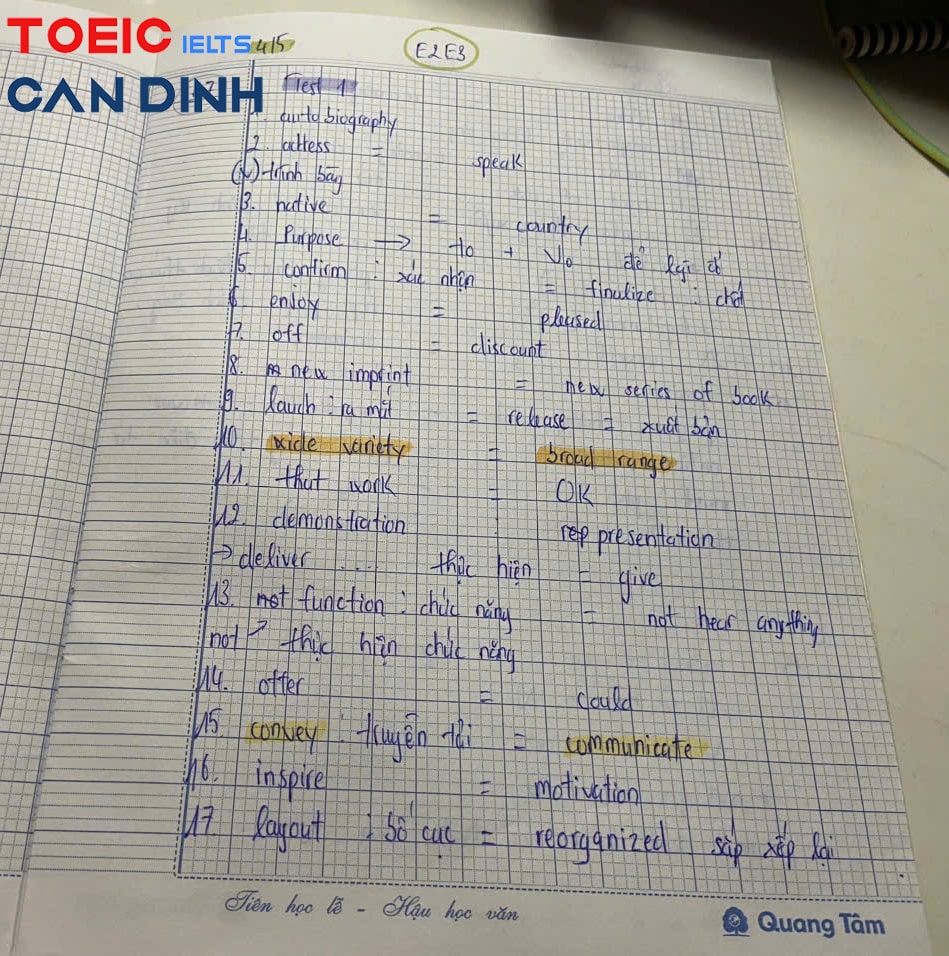 TOEIC IELTS 4/5 E2E3
CAN DINH
Test 1
1. autobiography
2. adress = speak
(v) trình bày
3. native = country
4. Purpose → to + V₀ để lại
5. confirm : xác nhận = finalize : chơ
6 enjoy = pleased
7. off = discount
8. new imprint = new series of book
9. lauch : ra mắt = release = xuất bản
10. wide variety = broad range
11. that work = OK
12. demonstration presentation
→ deliver .... thực hiện = give
13. not function : chức năng = not hear anything
not → thực hiện chức năng
14. offer = could
15. convey : truyền tải = communicate
16. inspire = motivation
17. layout : bố cục = reorganized sắp xếp lại
Tiên học lễ - Hậu học văn
Quang Tâm